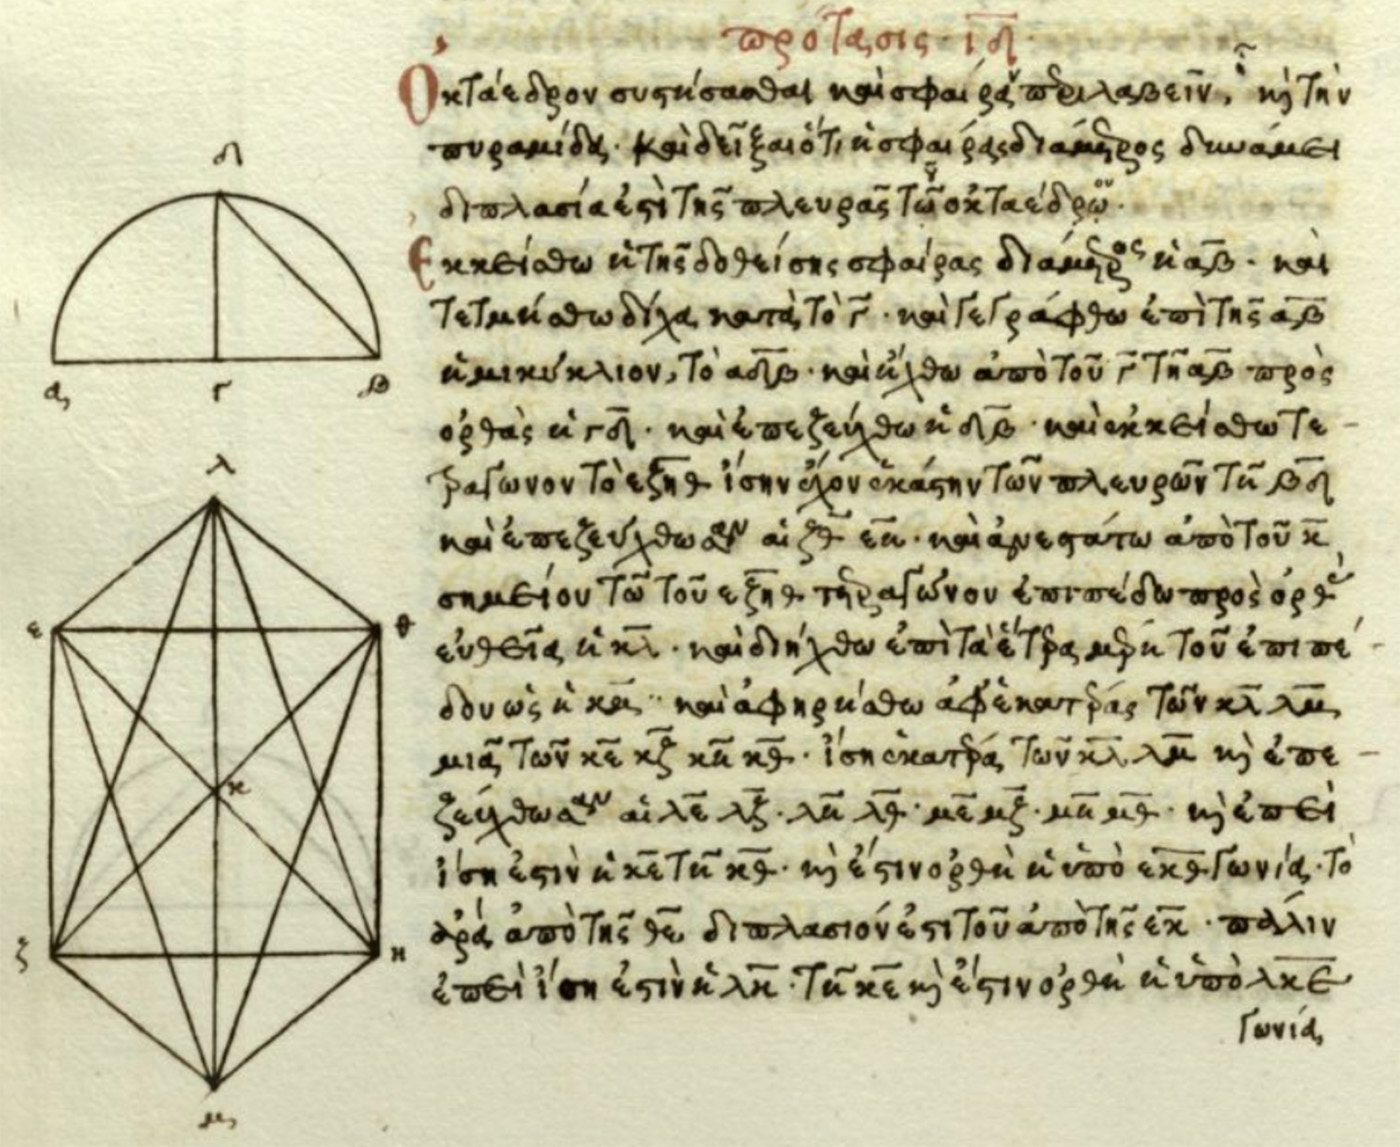 πρότασις ιδ
Ὀκτάεδρον συστήσασθαι καὶ σφαίρα περιλαβεῖν, ἧ κỳ τὴν
πυραμίδα. καὶ δεῖξαι ὅτι ἡ σφαίρας διάμετρος δυνάμει
διπλασία ἐστὶ τῆς πλευρᾶς τοῦ ὀκταέδρου.
Ἐκκείσθω ἡ τῆς δοθείσης σφαίρας διάμετρος ἡ αβ. καὶ
τετμήσθω δίχα κατὰ τὸ γ. καὶ γεγράφθω ἐπὶ τῆς αβ
ἡμικύκλιον, τὸ αδβ. καὶ ἤχθω ἀπὸ τοῦ γ τῆ αβ πρὸς
ὀρθὰς ἡ γδ. καὶ ἐπεζεύχθω ἡ δβ. καὶ ἐκκείσθω τε-
τράγωνον τὸ εζηθ ἴσην ἔχον ἑκάστην τῶν πλευρῶν τῆ βδ
καὶ ἐπεζεύχθωσαν αἱ ζθ εη. καὶ ἀνεστάτω ἀπὸ τοῦ κ
σημείου τῶ τοῦ εζηθ τετραγώνου ἐπιπέδω πρὸς ὀρθὰς
εὐθεῖα ἡ κλ. καὶ διήχθω ἐπὶ τὰ ἕτερα μέρη τοῦ ἐπιπέ-
δου ὡς ἡ κμ. καὶ ἀφηρήσθω ἀφ' ἑκατέρας τῶν κλ λμ
μιᾶ τῶν κε κζ κη κθ. ἴση ἑκατέρα τῶν κλ λμ κỳ ἐπε-
ζεύχθωσαν αἱ λε λζ. λη λθ. με μζ. μη μθ. κỳ ἐπεὶ
ἴση ἐστὶν ἡ κε τῆ κθ. κỳ ἔστιν ὀρθὴ ἡ ὑπὸ εκθ γωνία. τὸ
ἄρα ἀπὸ τῆς θε διπλάσιόν ἐστι τοῦ ἀπὸ τῆς εκ. πάλιν
ἐπεὶ ἴση ἐστὶν ἡ λκ. τῆ κε κỳ ἔστιν ὀρθὴ ἡ ὑπὸ λκε
γωνία
δ
α γ β
λ
ε θ
κ
ζ η
μ